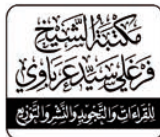 مكتبة الشيخ
فرغلي سيد عرباوي
للقراءات والتجويد والنشر والتوزيع